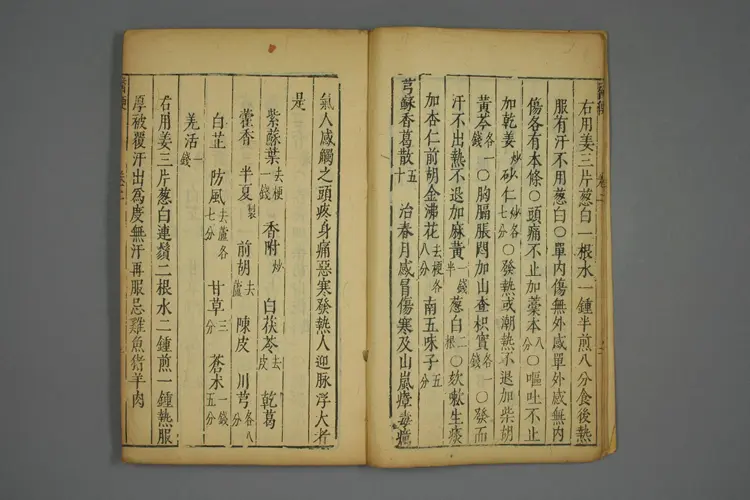 右用姜三片葱白一根水一鍾半煎八分食後熱
服有汗不用葱白○單內傷無外感單外感無內
傷各有本條○頭痛不止加藁本八分○嘔吐不止
加乾姜炒砂仁炒各二分○發熱或潮熱不退加柴胡
黃芩各一錢○胸膈脹悶加山查枳實各一錢○發而
汗不出熱不退加麻黃一錢半葱白二根○欬嗽生痰
加杏仁前胡金沸花去梗各八分南五味子五分
芎蘇香葛散五十 治春月感冒傷寒及山嵐瘴毒癘
氣人感觸之頭疼身痛惡寒發熱人迎脉浮大者
是
紫蘇葉去梗一錢 香附炒 白茯苓去皮 乾葛
藿香 半夏製 前胡去蘆 陳皮 川芎各八分
白芷 防風去蘆各七分 甘草三分 蒼朮一錢五分
羌活一錢
右用姜三片葱白連鬚二根水二鍾煎一鍾熱服
厚被覆汗出為度無汗再服忌雞魚猪羊肉